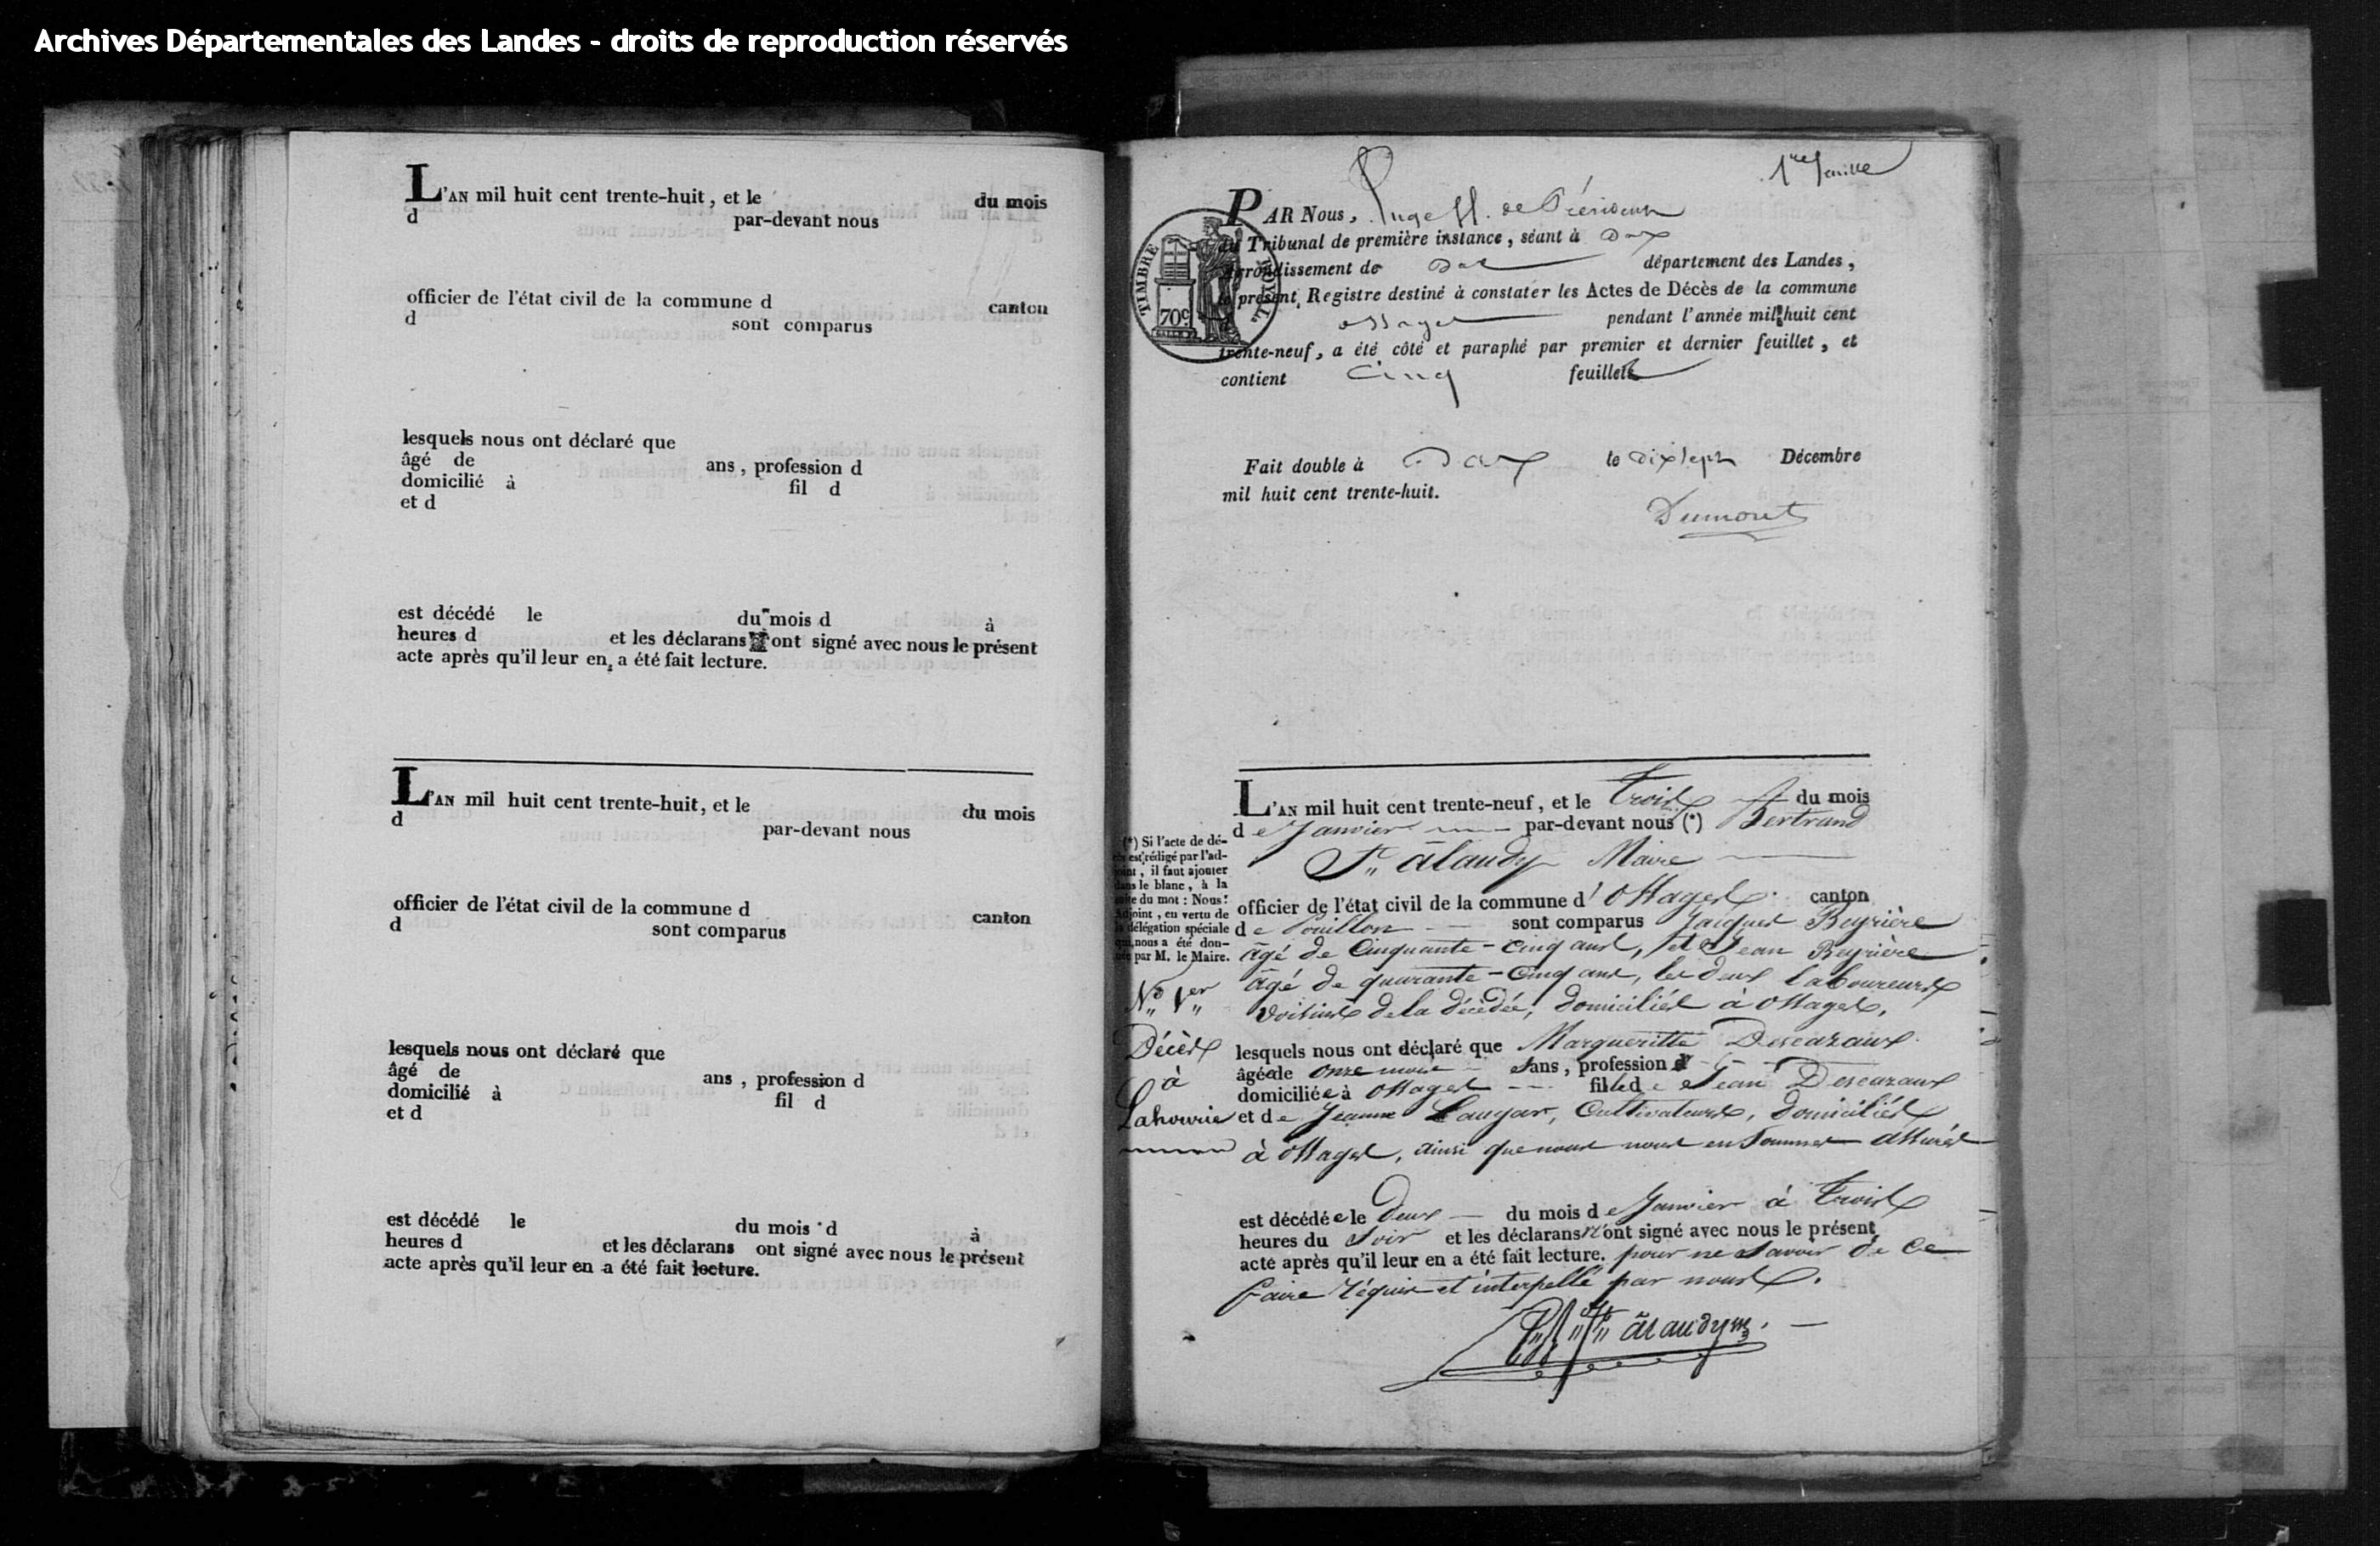 Archives Départementales des Landes - droits de reproduction réservés
L'AN mil huit cent trente-huit, et le du mois
d par-devant nous
officier de l'état civil de la commune d canton
d sont comparus
lesquels nous ont déclaré que
âgé de ans, profession d
domicilié à fil d
et d
est décédé le du mois d à
heures d et les déclarans ont signé avec nous le présent
acte après qu'il leur en a été fait lecture.
L'AN mil huit cent trente-huit, et le du mois
d par-devant nous
officier de l'état civil de la commune d canton
d sont comparus
lesquels nous ont déclaré que
âgé de ans, profession d
domicilié à fil d
et d
est décédé le du mois d à
heures d et les déclarans ont signé avec nous le présent
acte après qu'il leur en a été fait lecture.
PAR NOUS, Juge de Président
du Tribunal de première instance, séant à Dax
arrondissement de Dax département des Landes,
le présent Registre destiné à constater les Actes de Décès de la commune
d ossages pendant l'année mil huit cent
trente-neuf, a été côté et paraphé par premier et dernier feuillet, et
contient Cinq feuillets
TIMBRE ROYAL
70c
Fait double à Dax le dix sept Décembre
mil huit cent trente-huit.
Dumoret
L'AN mil huit cent trente-neuf, et le trois du mois
de Janvier par-devant nous (*) Bertrand
St. âlaudy Maire
officier de l'état civil de la commune d'Ossages canton
de Pouillon sont comparus Jacques Beyrière
âgé de Cinquante-cinq ans, et Jean Beyrière
âgé de quarante-cinq ans, les deux laboureurs
voisins de la décédée, domiciliés à ossages,
lesquels nous ont déclaré que Margueritte Descazaux
âgée de onze mois ans, profession d
domiciliée à ossages fille de Jean Descazaux
et de Jeanne Laugar, Cultivateurs, domiciliés
à ossages, ainsi que nous nous en sommes assurés
est décédée le Deux du mois de Janvier à trois
heures du soir et les déclarans n'ont signé avec nous le présent
acte après qu'il leur en a été fait lecture. pour ne savoir de ce
faire réquis et interpellé par nous.
âlaudy m.
(*) Si l'acte de décès
est rédigé par l'adjoint,
il faut ajouter
dans le blanc, à la
suite du mot : Nous :
Adjoint, en vertu de
la délégation spéciale
qui nous a été donnée
par M. le Maire.
No. 1er
Décès
à
Lahourie